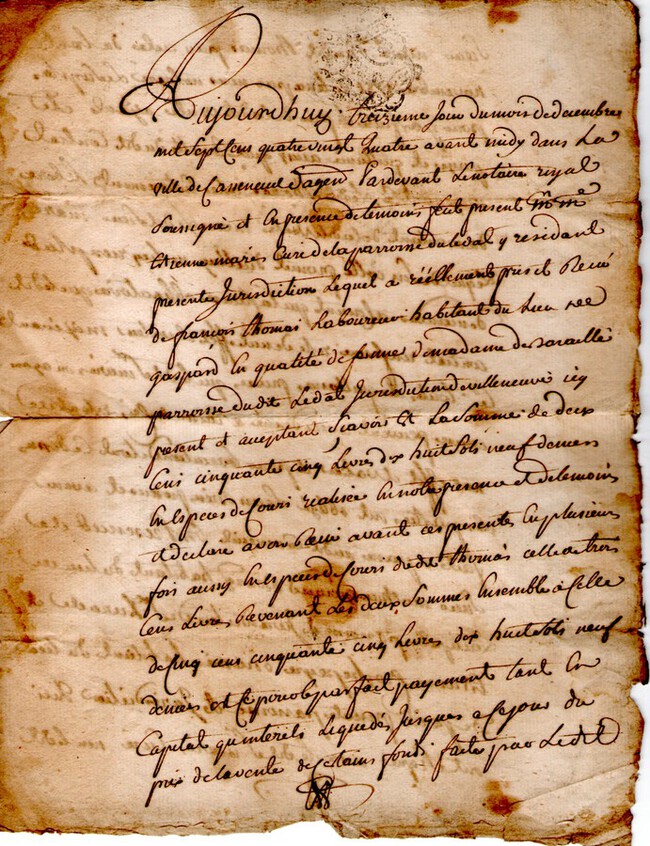 Aujourdhuy treizieme Jour du mois de decembre
mil Sept Cens quatre vingt Quatre avant midy dans La
ville de Casseneuil d'agen Pardevant Le notaire royal
Soussigné et En presence des temoins feut present
Etienne marés Curé de la parroisse du Ledat y residant
presente Jurisdiction Lequel a réellement pris et Receu
de françois thomas Laboureur habitant du Lieu de
gaspard En qualité de de madame de
parroisse dudit Ledat Jurisdiction de villeneuve icy
present et acceptant Scavoir Est La Somme de deux
Cens cinquante cinq Livres dix huit Sols neuf deniers
En Especes de Cours realisée En notre presence et des temoins
et declare avoir Receu avant ces presentes En plusieurs
fois aussy En Especes de Cours dudit thomas celle de trois
Cens Livres Revenant Les deux Sommes Ensemble a Celle
de Cinq cens cinquante cinq Livres dix huit Sols neuf
deniers et Ce pour le parfait payement tant En
Capital qu'interets Liquidés Jusques a Ce jour du
prix de la vente de Certains fonds faite par Ledit